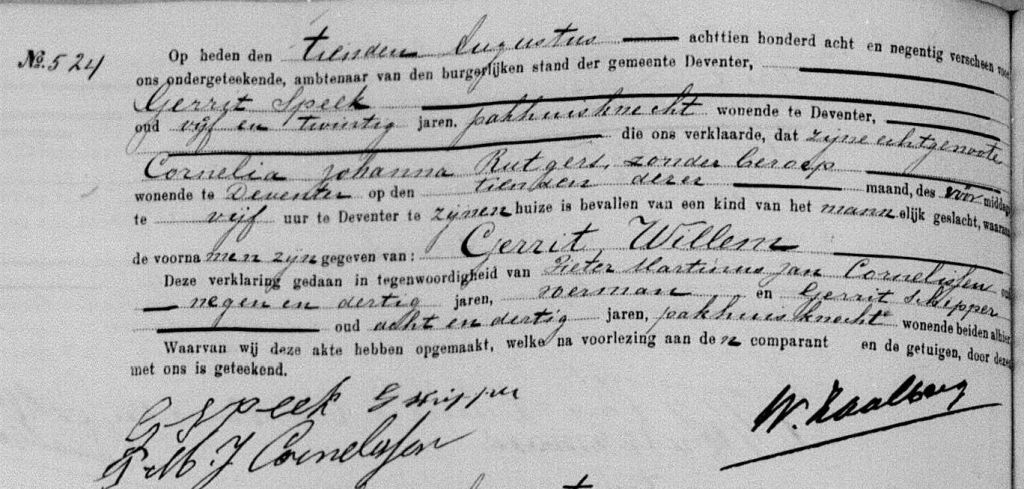 No. 524
Op heden den tienden Augustus achttien honderd acht en negentig verscheen voor
ons ondergeteekende, ambtenaar van den burgerlijken stand der gemeente Deventer,
Gerrit Speek
oud vijf en twintig jaren, pakhuisknecht wonende te Deventer,
die ons verklaarde, dat zijne echtgenoote
Cornelia Johanna Rutgers, zonder beroep
wonende te Deventer op den tienden dezer maand, des voormiddags
te vijf uur te Deventer te zijnen huize is bevallen van een kind van het mannelijk geslacht, waaraan
de voornamen zijn gegeven van: Gerrit Willem
Deze verklaring gedaan in tegenwoordigheid van Pieter Martinus Jan Cornelissen oud
negen en dertig jaren, voerman en Gerrit Schipper
oud acht en dertig jaren, pakhuisknecht wonende beiden alhier
Waarvan wij deze akte hebben opgemaakt, welke na voorlezing aan den comparant en de getuigen, door dezen
met ons is geteekend.
G Speek G Schipper
P. M. J Cornelissen
W. Kaalberg